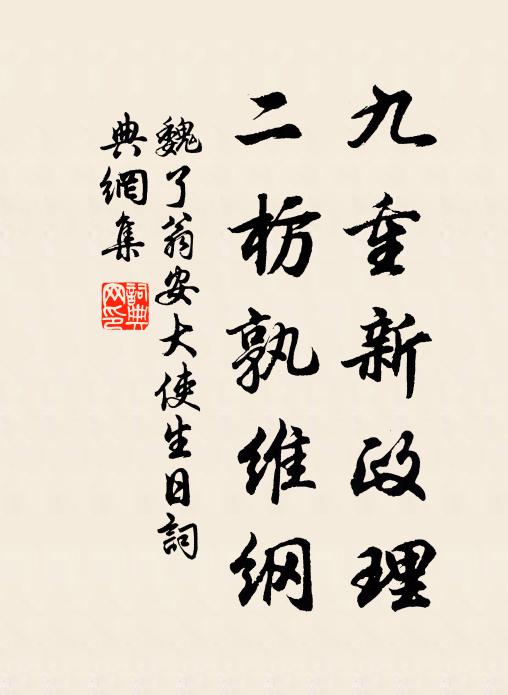 九重新政理
二枋孰维纲
魏了翁安大使生日詞
典網集
詞典网印